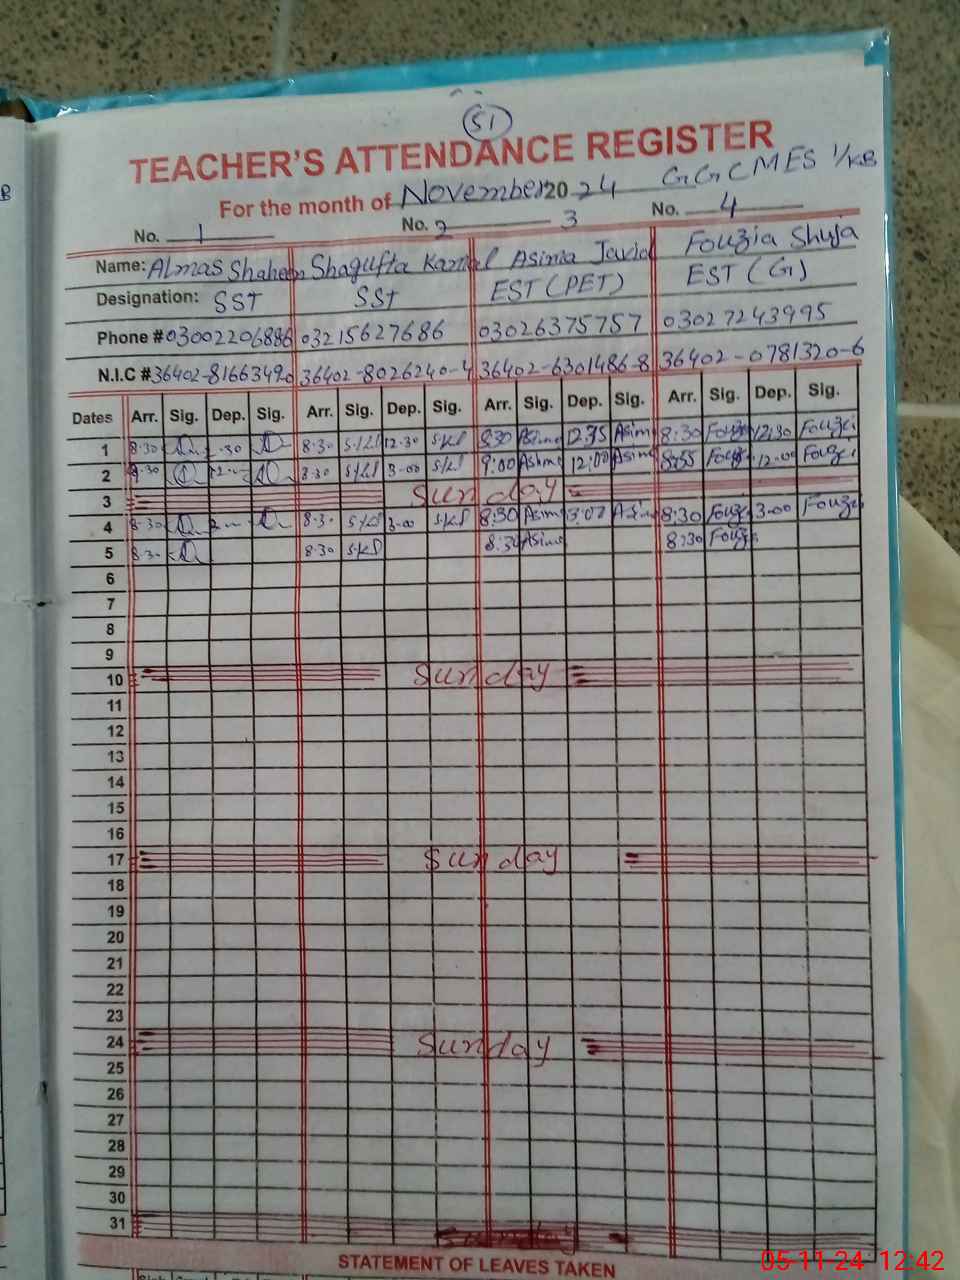 51
TEACHER'S ATTENDANCE REGISTER
For the month of November 2024 G.G.C MES 1/KB
No. 1 No. 2 3 No. 4
Name: Almas Shaheen Shagufta Kamal Asima Javid Fouzia Shuja
Designation: SST SST EST (PET) EST (G)
Phone # 03002206886 03215627686 03026375757 03027243995
N.I.C # 36402-8166349 36402-8026240-4 36402-6301486-8 36402-0781320-6
Dates Arr. Sig. Dep. Sig. Arr. Sig. Dep. Sig. Arr. Sig. Dep. Sig. Arr. Sig. Dep. Sig.
1 8:30 8:30 12:30 8:30 Asima 12:35 Asima 8:30 12:30
2 8:30 3:00 9:00 Asima 12:00 Asima 8:55 12:00
3 Sunday
4 8:30 8:30 3:00 8:30 Asima 3:00 Asima 8:30 3:00
5 8:30 8:30 Asima 8:30
6
7
8
9
10 Sunday
11
12
13
14
15
16
17 Sunday
18
19
20
21
22
23
24 Sunday
25
26
27
28
29
30
31
STATEMENT OF LEAVES TAKEN
05-11-24 12:42